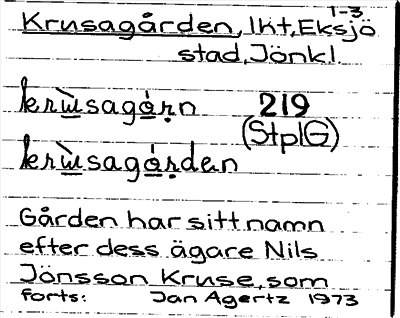 1-3
Krusagården, lkt, Eksjö
stad, Jönk l.
krùsagárn 219
(StplG)
krùsagárdan
Gården har sitt namn
efter dess ägare Nils
Jönsson Kruse, som
forts: Jan Agertz 1973